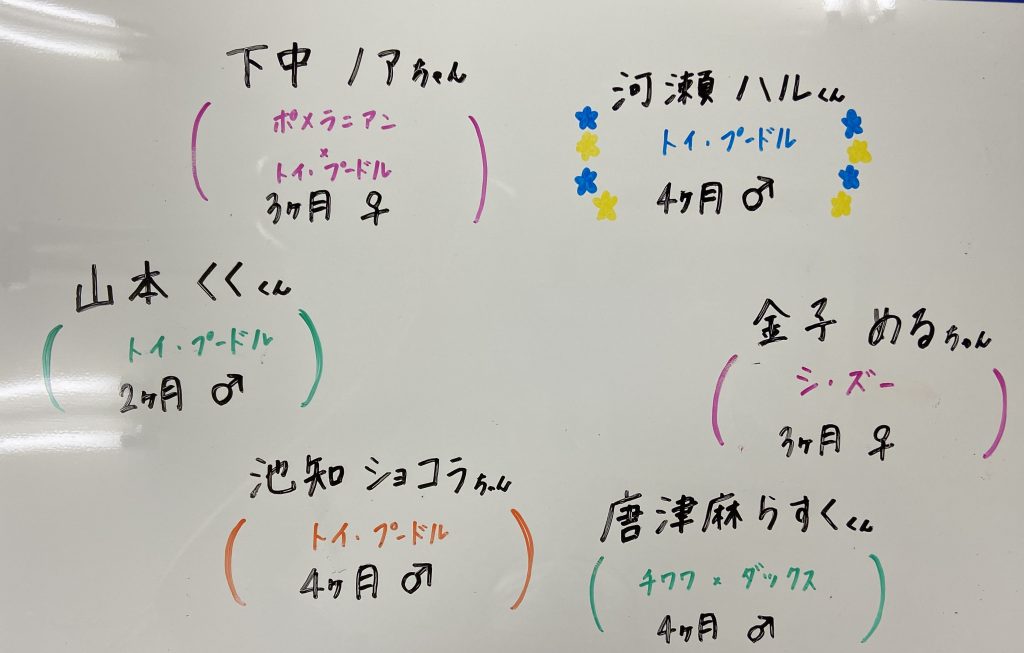 下中 ノアちゃん
ポメラニアン
×
トイ・プードル
3ヶ月 ♀
河瀬 ハルくん
トイ・プードル
4ヶ月 ♂
山本 くくくん
トイ・プードル
2ヶ月 ♂
金子 めるちゃん
シ・ズー
3ヶ月 ♀
池知 ショコラちゃん
トイ・プードル
4ヶ月 ♂
唐津麻らすくくん
チワワ × ダックス
4ヶ月 ♂